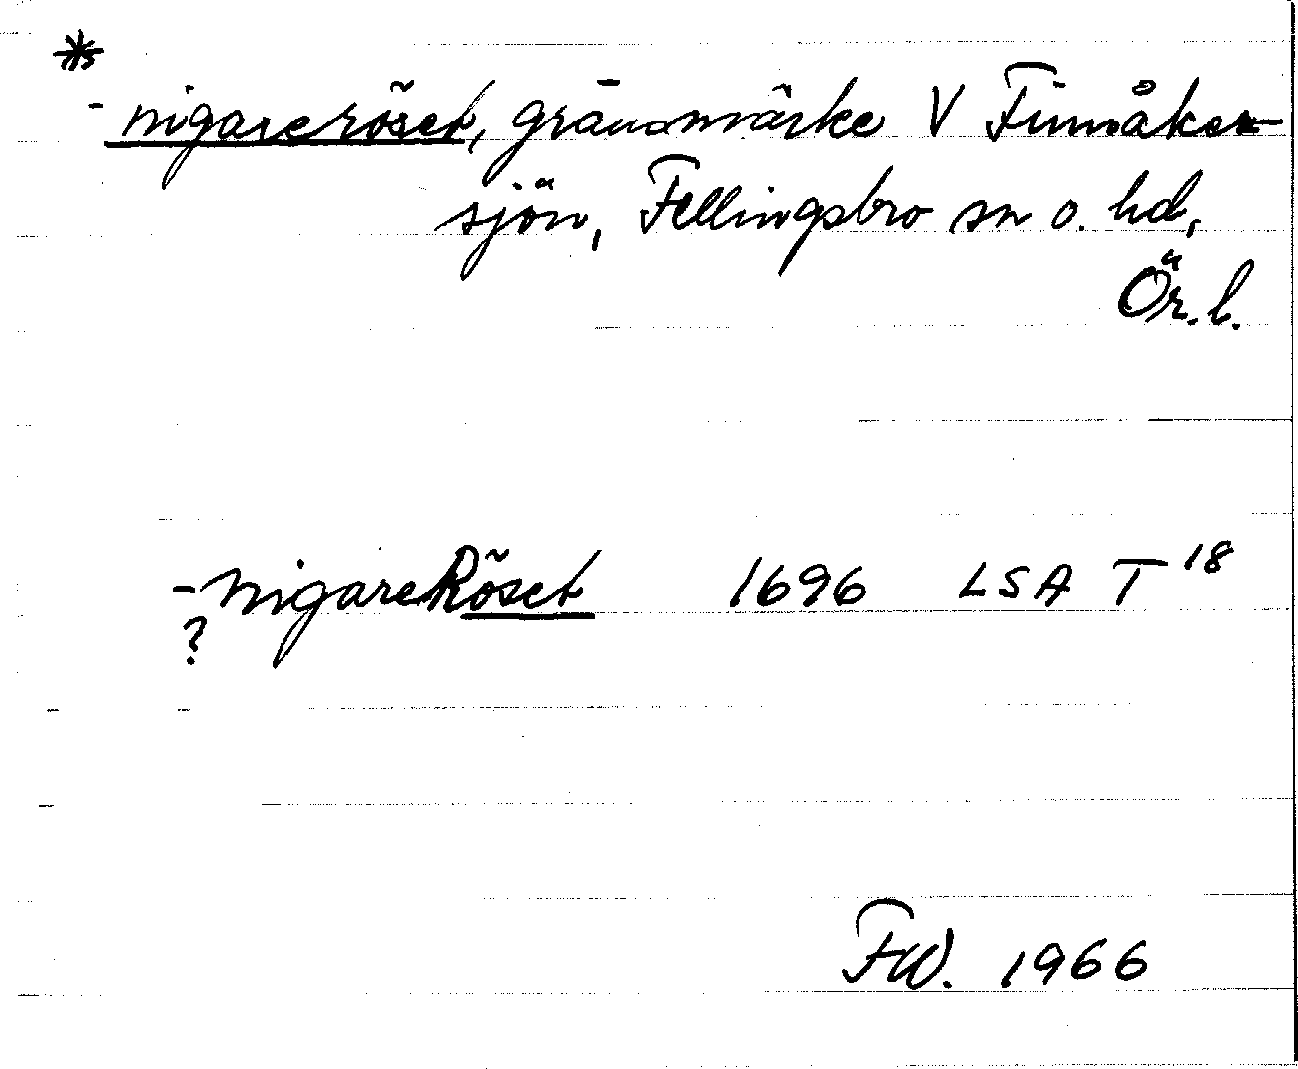 *
-nigareröset, gränsmärke V Finnåker-
sjön, Fellingsbro sn o. hd,
Ör. l.
-nigareRöset 1696 LSA T 18
?
FW. 1966